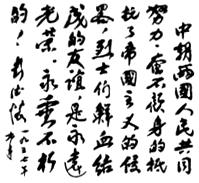 中朝兩國人民共同
努力，奮不顧身的抵
抗了帝國主义的侵
畧，烈士们鮮血结
成的友誼是永遠
光荣，永垂不朽
的！彭德怀
一九五七年